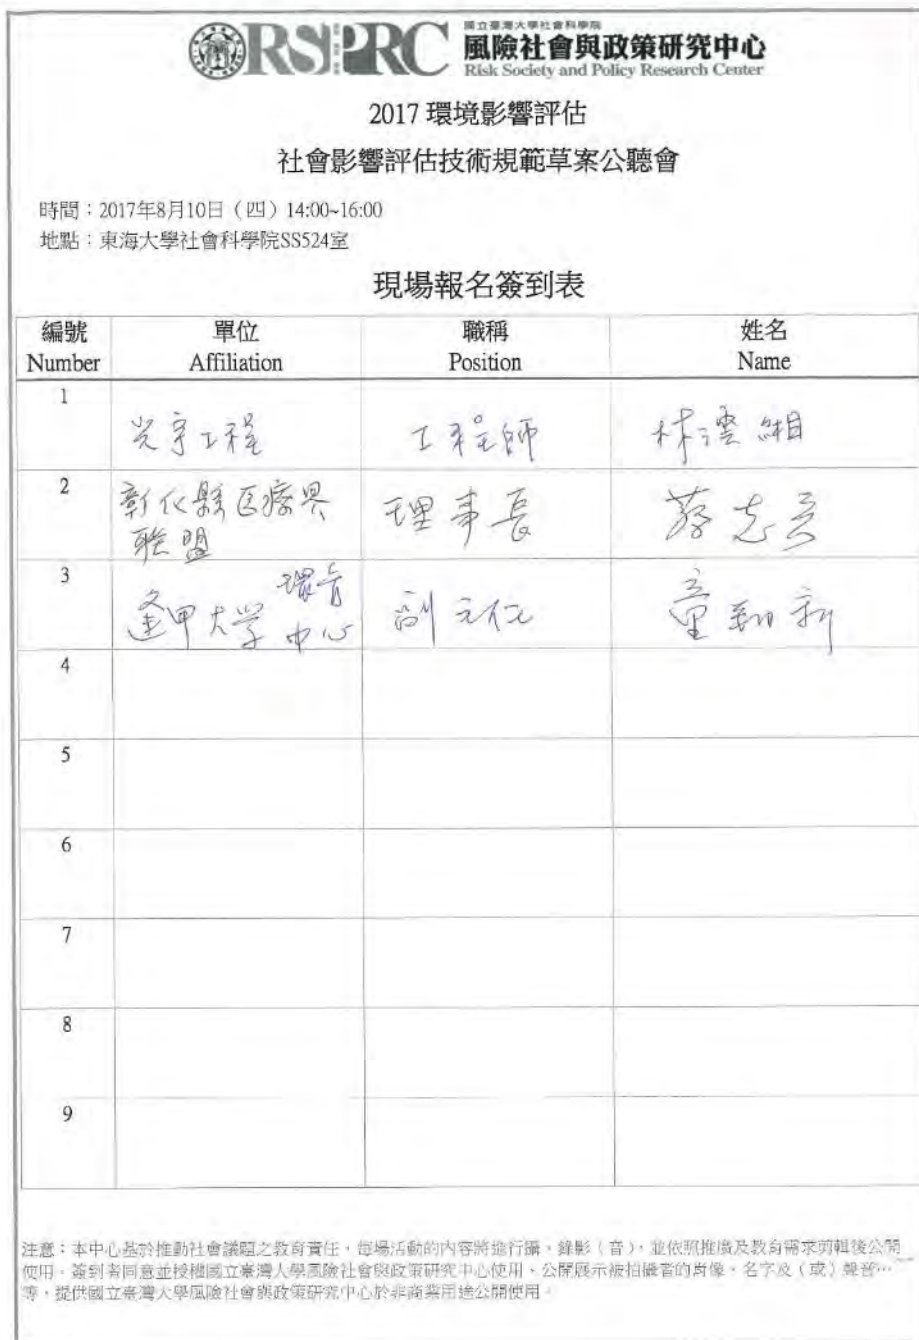 RSPRC
國立臺灣大學社會科學院
風險社會與政策研究中心
Risk Society and Policy Research Center
2017 環境影響評估
社會影響評估技術規範草案公聽會
時間：2017年8月10日（四）14:00~16:00
地點：東海大學社會科學院SS524室
現場報名簽到表
編號 單位 職稱 姓名
Number Affiliation Position Name
1
光宇工程 工程師 林澐緗
2
彰化縣医療界 理事長 蔡志宏
联盟
3
環音
逢甲大学 中心 副主任 童勁新
4
5
6
7
8
9
注意：本中心基於推動社會議題之教育責任，每場活動的內容將進行攝、錄影（音），並依照推廣及教育需求剪輯後公開
使用。簽到者同意並授權國立臺灣大學風險社會與政策研究中心使用、公開展示被拍攝者的肖像、名字及（或）聲音…
等，提供國立臺灣大學風險社會與政策研究中心於非商業用途公開使用。